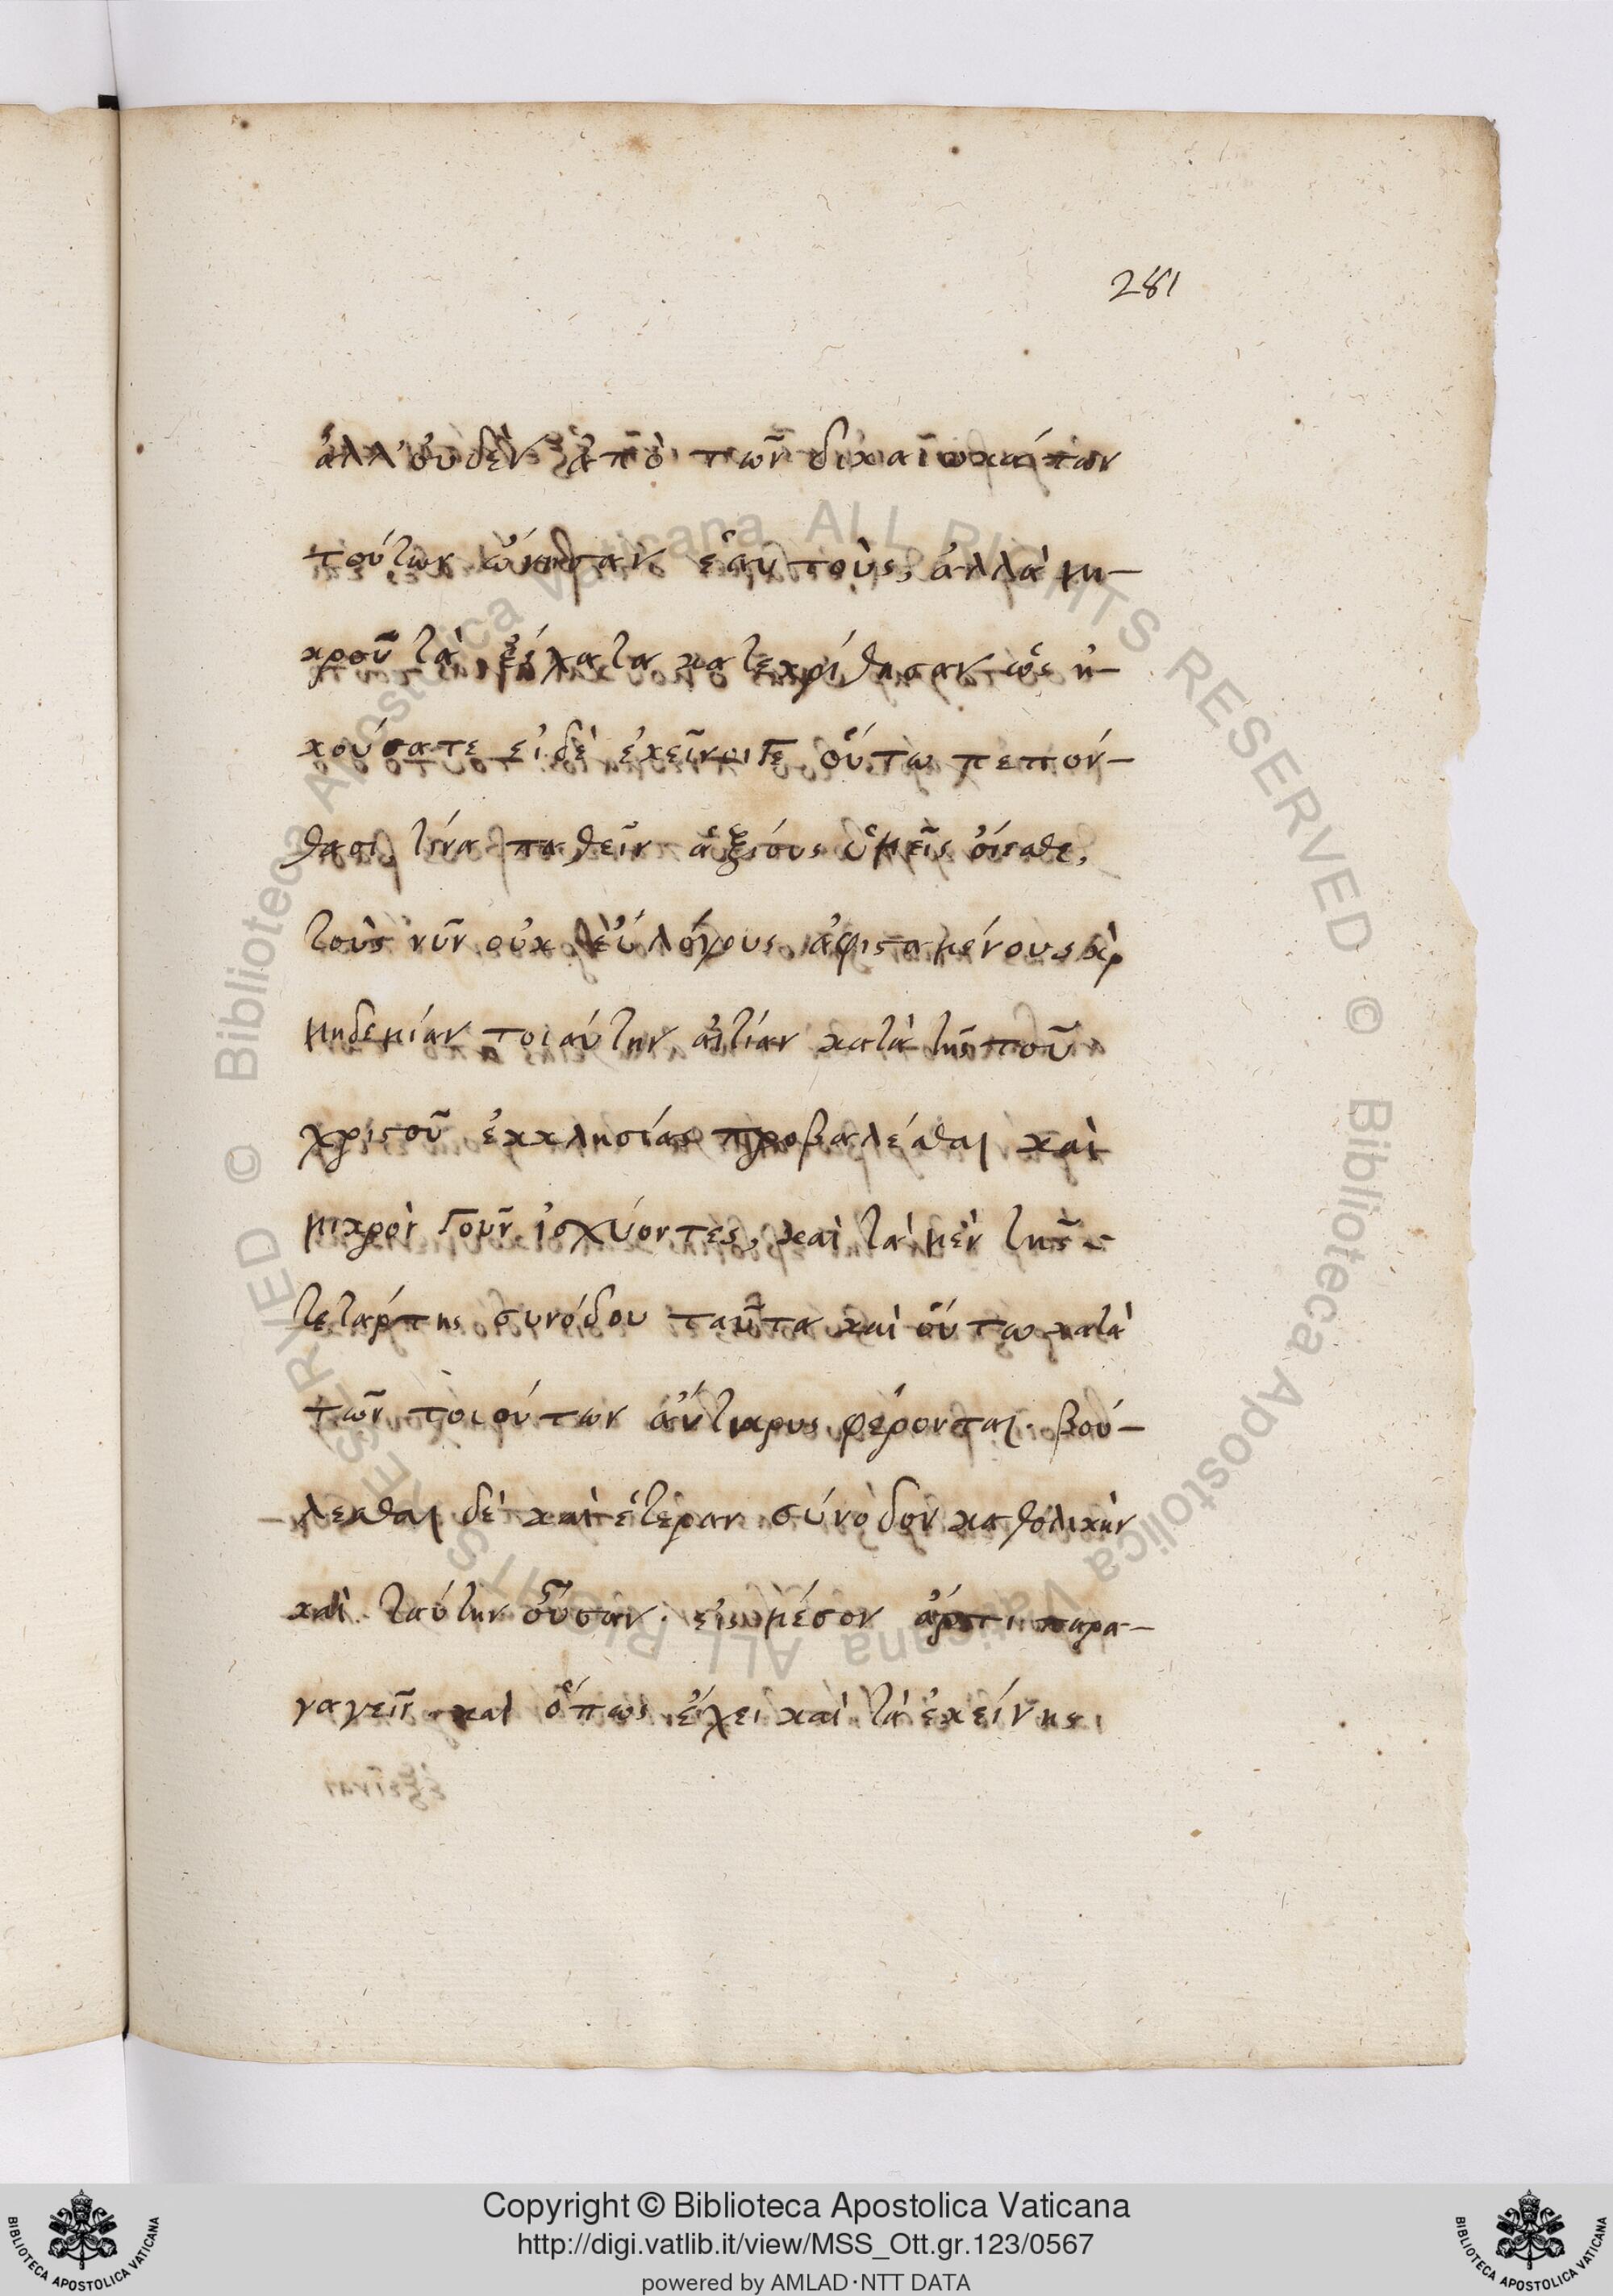 281
ἀλλ' οὐδὲν ἀπὸ τῶν δικαιωμάτων
τούτων ὤνησαν ἑαυτοὺς, ἀλλὰ μι-
κροῦ τὰ ἔσχατα κατεκρίθησαν ὡς ἠ-
κούσατε εἰ δὲ ἐκεῖνοι γε οὕτω πεπόν-
θασι, τίνα παθεῖν ἀξίους ὑμεῖς οἴεσθε,
τοὺς νῦν οὐκ εὐλόγους ἀφισταμένους καὶ
μηδεμίαν τοιαύτην αἰτίαν κατὰ τῆς τοῦ
χριστοῦ ἐκκλησίας προβαλέσθαι καὶ
μικρὸν γοῦν ἰσχύοντες, καὶ τὰ μὲν τῆς
τετάρτης συνόδου ταῦτα καὶ οὕτω κατὰ
τῶν τοιούτων ἄντικρυς φέρονται. βού-
λεσθαι δὲ καὶ ἑτέραν σύνοδον καθολικὴν
καὶ ταύτην οὖσαν. εἰς μέσον ἄρτι παρα-
γαγεῖν καὶ ὅπως ἔχει καὶ τὰ ἐκείνης
Copyright © Biblioteca Apostolica Vaticana
http://digi.vatlib.it/view/MSS_Ott.gr.123/0567
powered by AMLAD·NTT DATA
BIBLIOTECA APOSTOLICA VATICANA
BIBLIOTECA APOSTOLICA VATICANA
© Biblioteca Apostolica Vaticana ALL RIGHTS RESERVED
© Biblioteca Apostolica Vaticana ALL RIGHTS RESERVED